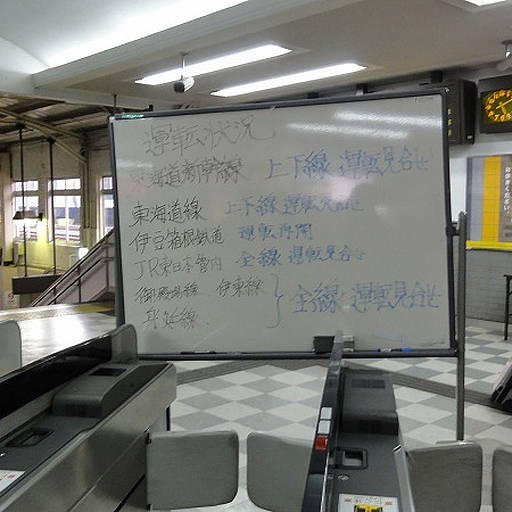 運転状況
東海道新幹線 上下線 運転見合せ
東海道線 上下線 運転見合せ
伊豆箱根鉄道 運転再開
JR東日本管内 全線 運転見合せ
御殿場線 伊東線
身延線 全線 運転見合せ